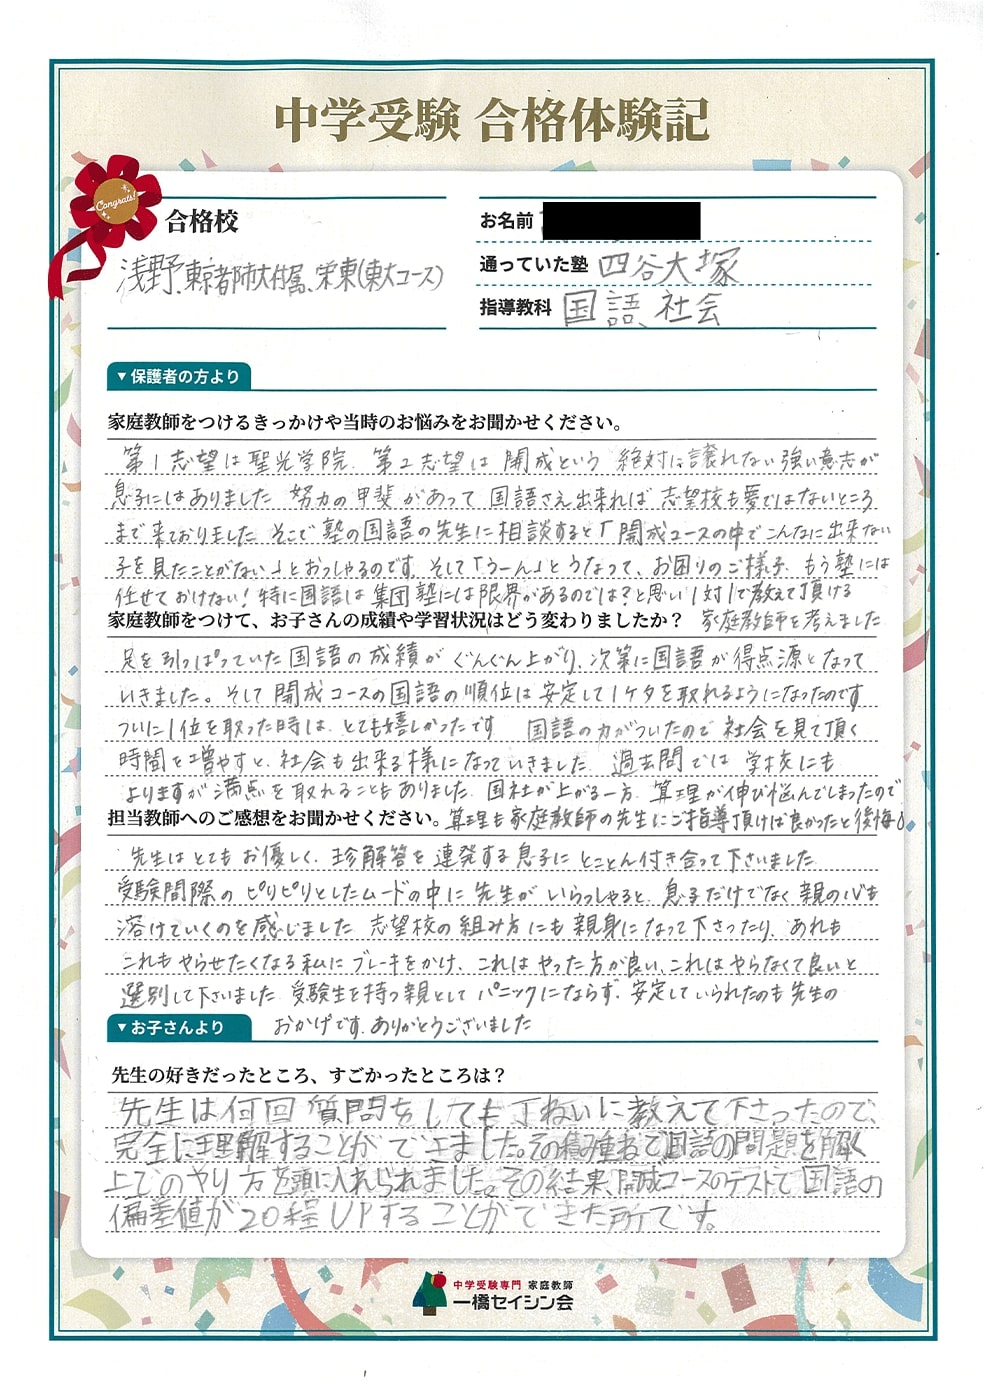 中学受験 合格体験記
Congrats!
合格校
浅野、東京都市大付属、栄東(東大コース)
お名前
通っていた塾 四谷大塚
指導教科 国語、社会
▼保護者の方より
家庭教師をつけるきっかけや当時のお悩みをお聞かせください。
第1志望は聖光学院、第2志望は 開成という 絶対に譲れない強い意志が
息子にはありました 努力の甲斐があって 国語さえ出来れば 志望校も夢ではないところ
まで来ておりました そこで塾の国語の先生に相談すると「開成コースの中でこんなに出来ない
子を見たことがない」とおっしゃるのです。そして「うーん」とうなって、お困りのご様子、もう塾には
任せておけない!特に国語は集団塾には限界があるのでは?と思い1対1で教えて頂ける
家庭教師を考えました
家庭教師をつけて、お子さんの成績や学習状況はどう変わりましたか?
足を引っぱっていた国語の成績が ぐんぐん上がり、次第に国語が得点源となって
いきました。そして開成コースの国語の順位は安定して1ケタを取れるようになったのです
ついに1位を取った時は、とても嬉しかったです 国語の力がついたので 社会を見て頂く
時間を増やすと、社会も出来る様になっていきました 過去問では 学校にも
よりますが満点を取れることもありました 国社が上がる一方、算理が伸び悩んでしまったので
算理も家庭教師の先生にご指導頂けば良かったと後悔
担当教師へのご感想をお聞かせください。
先生はとてもお優しく、珍解答を連発する息子に とことん付き合って下さいました
受験間際の ピリピリとしたムードの中に 先生が いらっしゃると、息子だけでなく親の心も
溶けていくのを感じました 志望校の組み方にも親身になって下さったり、あれも
これもやらせたくなる私にブレーキをかけ、これはやった方が良い、これはやらなくて良いと
選別して下さいました 受験生を持つ親として パニックにならず、安定していられたのも先生の
おかげです、ありがとうございました
▼お子さんより
先生の好きだったところ、すごかったところは?
先生は何回質問をしても丁ねいに教えて下さったので、
完全に理解することができました。その積み重ねで国語の問題を解く
上でのやり方を頭に入れられました。その結果、開成コースのテストで国語の
偏差値が20程UPすることができた所です。
中学受験専門 家庭教師
一橋セイシン会